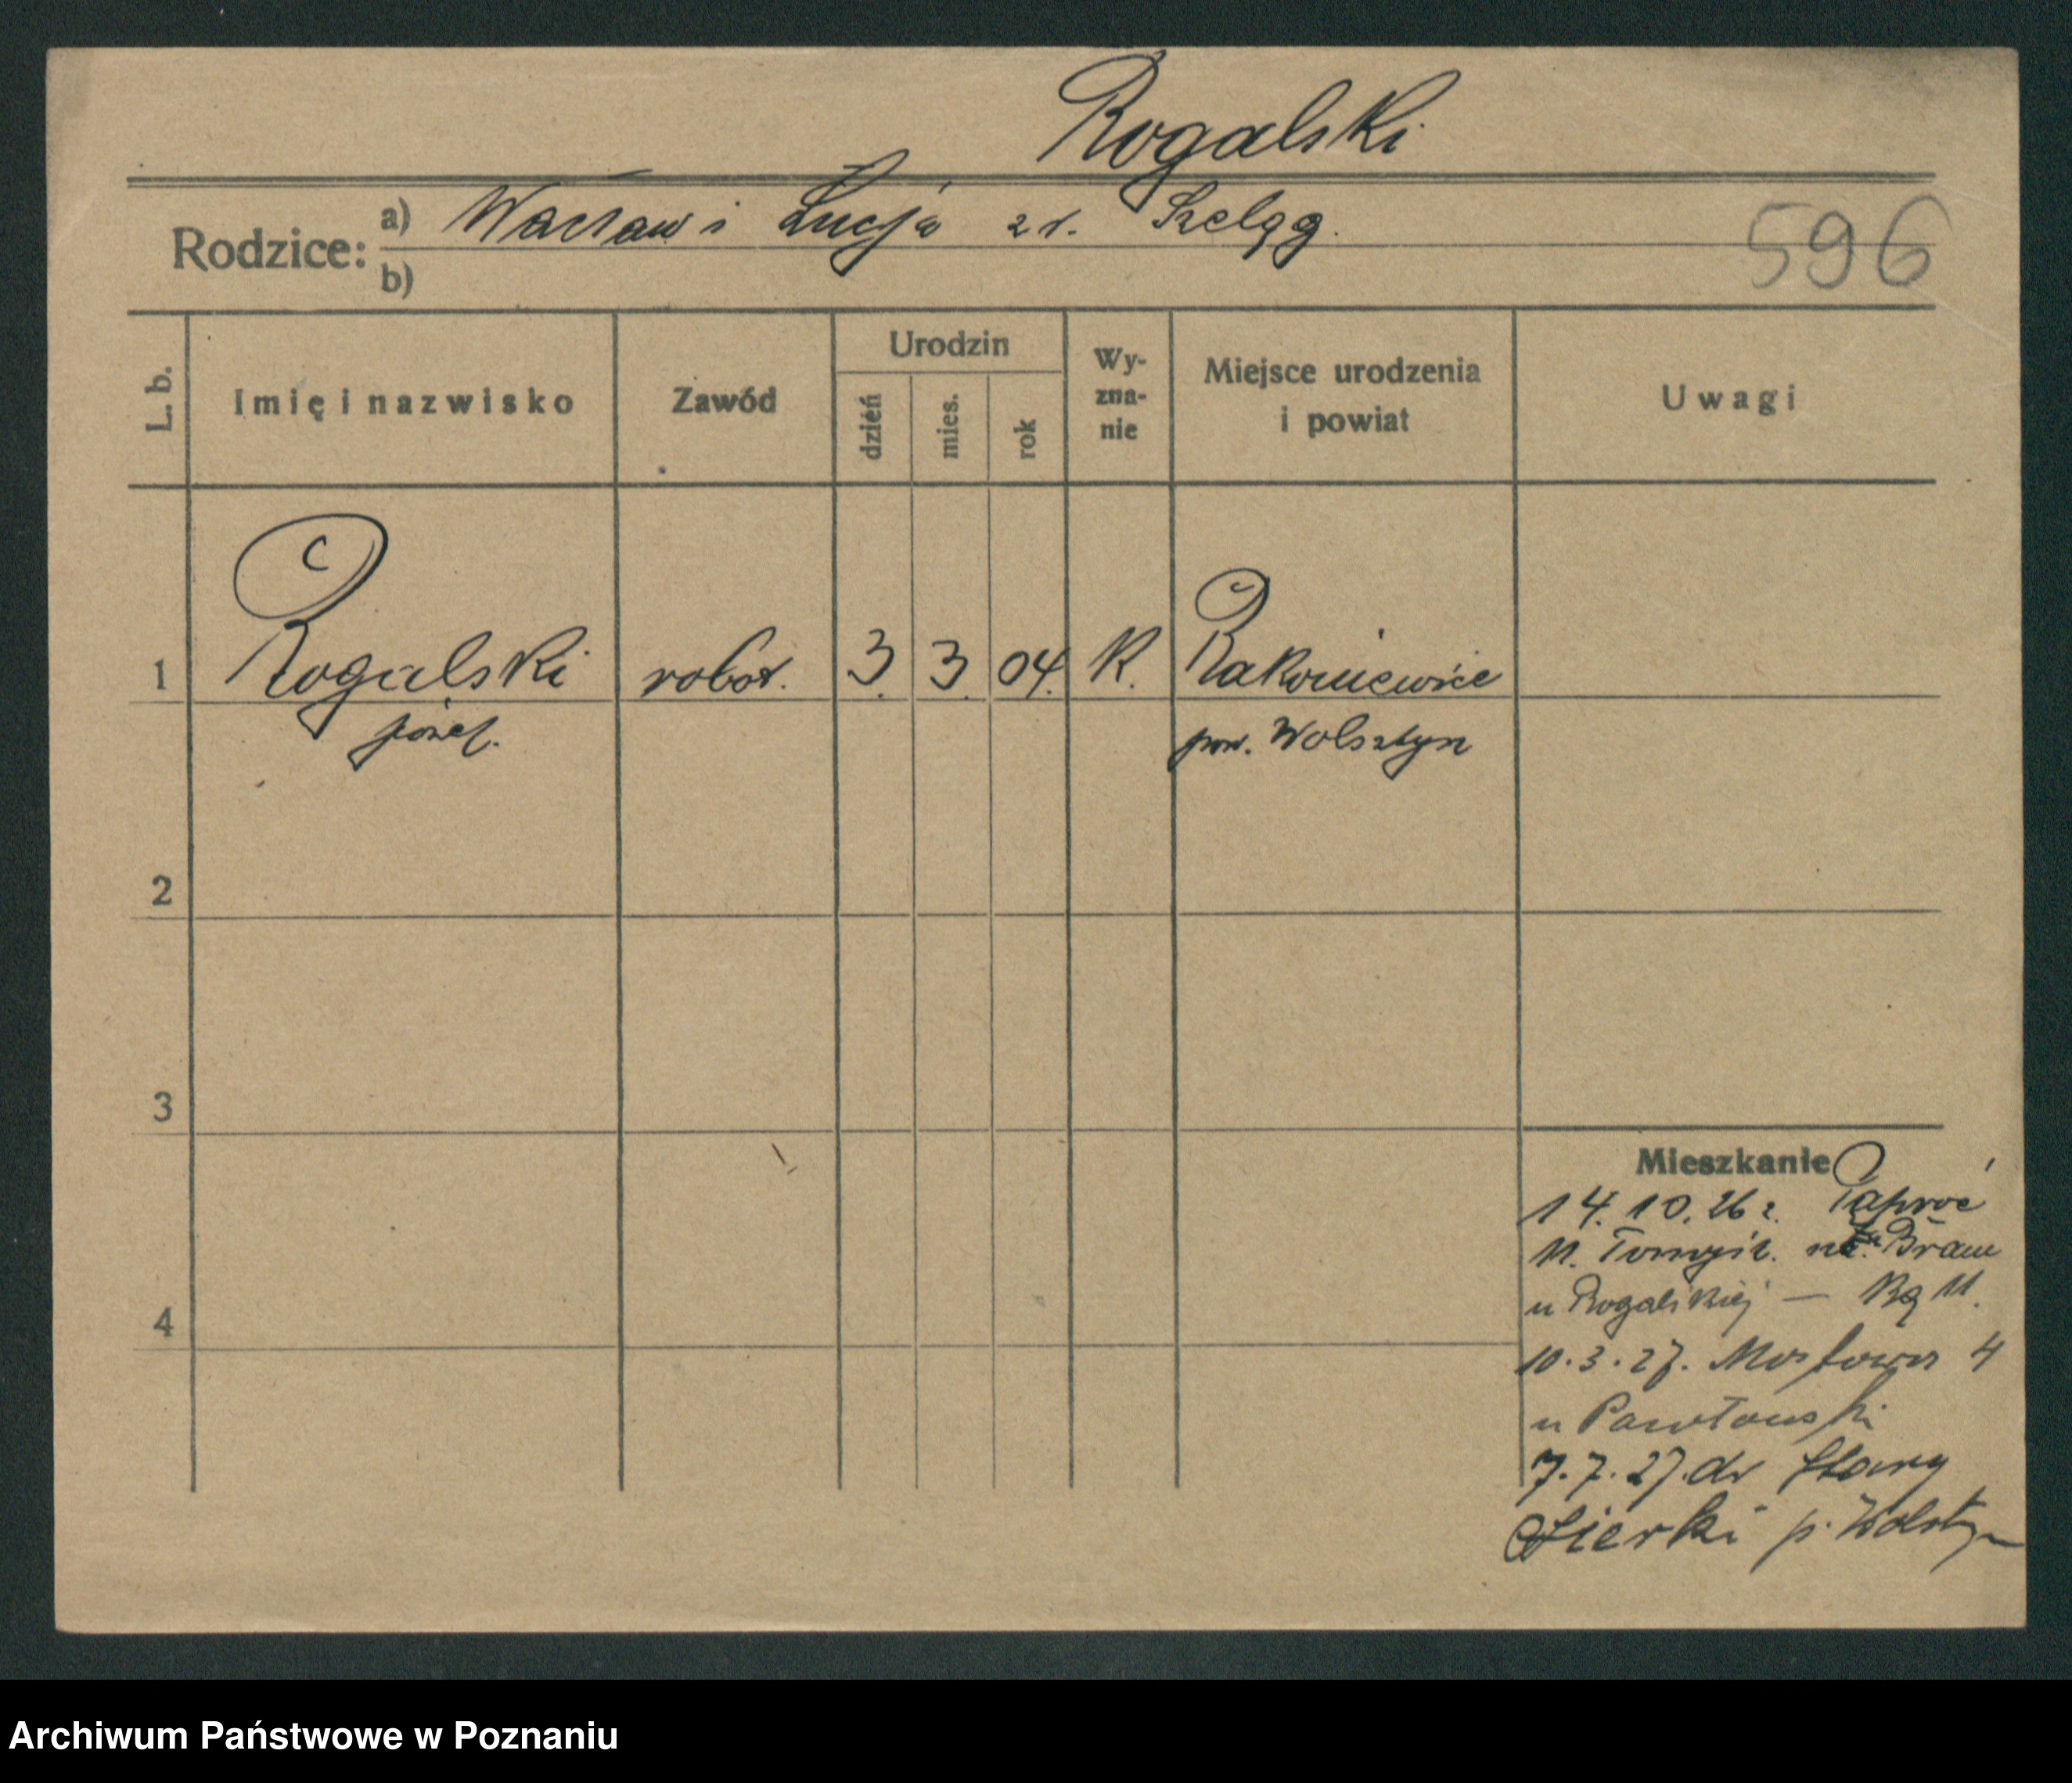 Rogalski
Rodzice: a) Wacław i Łucja z d. Szeląg.
b)
596
L. b.
Imię i nazwisko
Zawód
Urodzin
dzień
mies.
rok
Wy-
zna-
nie
Miejsce urodzenia
i powiat
Uwagi
1 Rogalski robot. 3. 3. 04. K. Rakoniewice
Józef. pow. Wolsztyn
2
3
4
Mieszkanie
14.10.26 r. Paproć
N. Tomyśl. Bram
u Rogalskiej —
10.3.27. Mostowa 4
u Pawłowski
7.7.27. do Stary
p. Wolsztyn
Archiwum Państwowe w Poznaniu